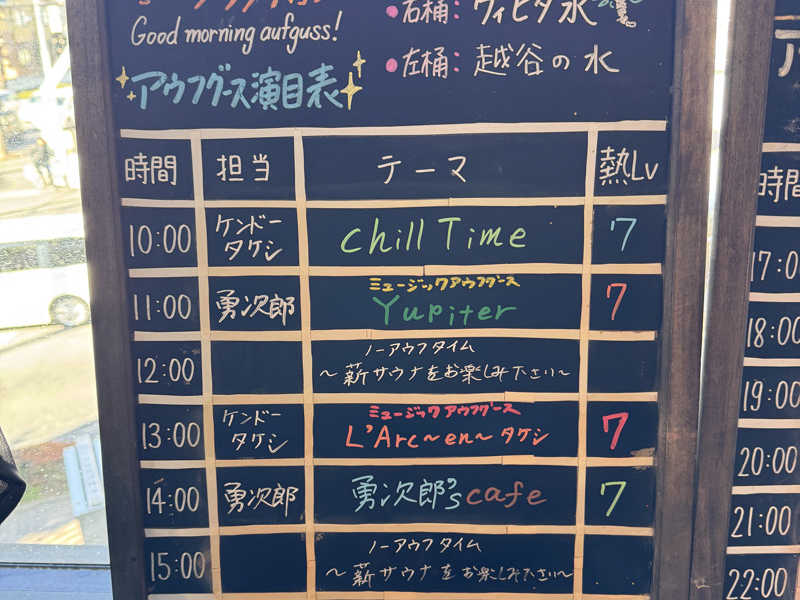 Good morning aufguss!
●右桶: ヴィヒタ水
●左桶: 越谷の水
アウフグース演目表
時間 担当 テーマ 熱Lv
10:00 ケンドータケシ chill Time 7
11:00 勇次郎 ミュージックアウフグース
Yupiter 7
12:00 ノーアウフタイム
～薪サウナをお楽しみ下さい～
13:00 ケンドータケシ ミュージックアウフグース
L'Arc~en~タケシ 7
14:00 勇次郎 勇次郎's cafe 7
15:00 ノーアウフタイム
～薪サウナをお楽しみ下さい～
時間
17:0
18:00
19:00
20:00
21:00
22:00